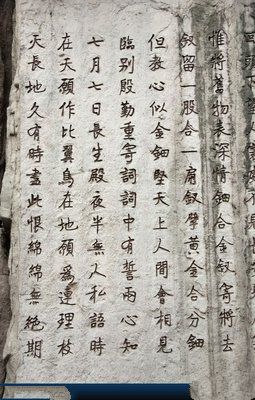 惟將舊物表深情鈿合金釵寄將去
釵留一股合一扇釵擘黃金合分鈿
但教心似金鈿堅天上人間會相見
臨別殷勤重寄詞詞中有誓兩心知
七月七日長生殿夜半無人私語時
在天願作比翼鳥在地願爲連理枝
天長地久有時盡此恨綿綿無絕期